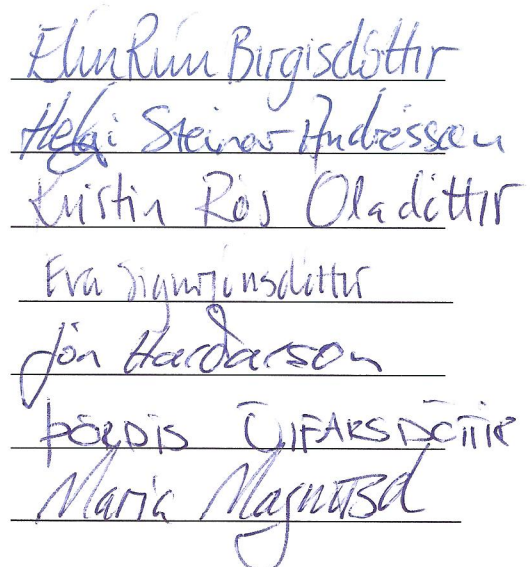 Elín Rún Birgisdóttir
Helgi Steinar Andrésson
Kristín Rós Óladóttir
Eva Sigurjónsdóttir
Jón Hardarson
ÞÓRDÍS ÚLFARSDÓTTIR
María Magnúsd